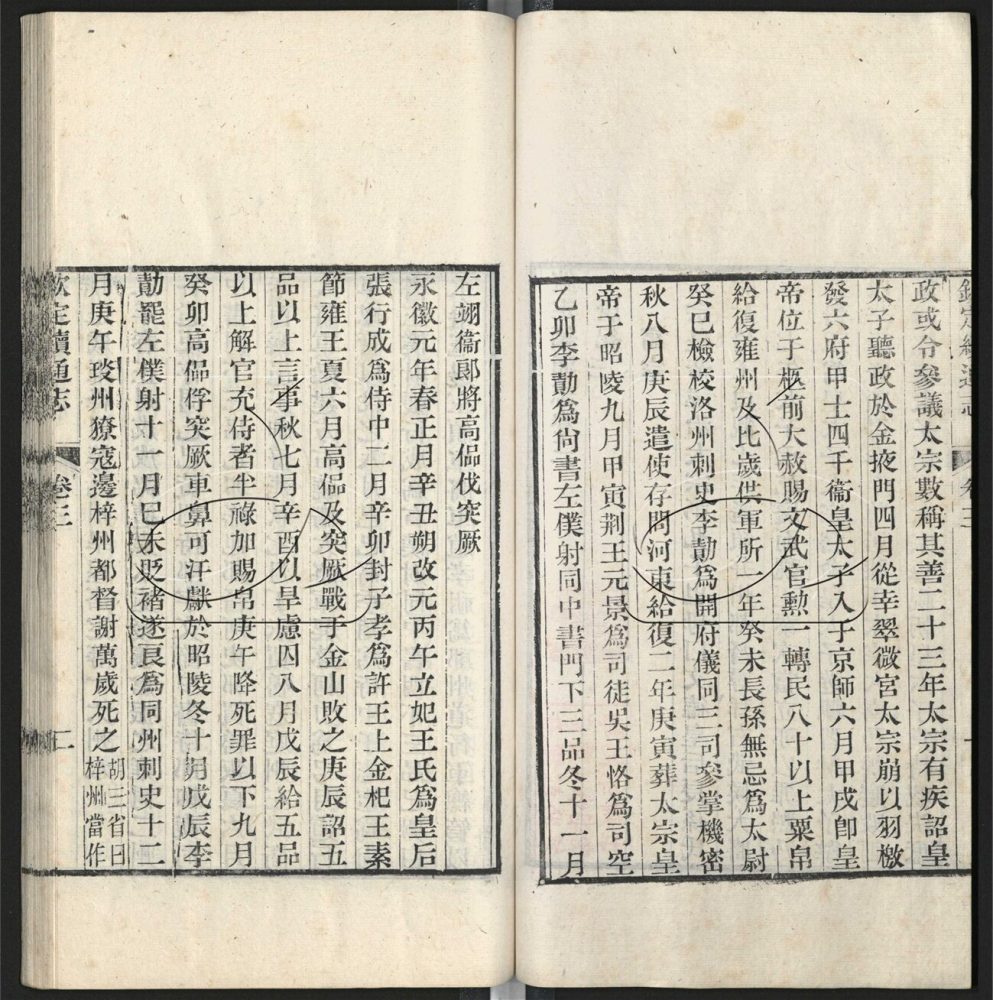 政或令參議太宗數稱其善二十三年太宗有疾詔皇
太子聽政於金掖門四月從幸翠微宮太宗崩以羽檄
發六府甲士四千衞皇太子入于京師六月甲戌卽皇
帝位于柩前大赦賜文武官勲一轉民八十以上粟帛
給復雍州及比歲供軍所一年癸未長孫無忌爲太尉
癸巳檢校洛州刺史李勣爲開府儀同三司參掌機密
秋八月庚辰遣使存問河東給復二年庚寅葬太宗皇
帝于昭陵九月甲寅荆王元景爲司徒吳王恪爲司空
乙卯李勣爲尙書左僕射同中書門下三品冬十一月
左翊衞郞將高偘伐突厥
永徽元年春正月辛丑朔改元丙午立妃王氏爲皇后
張行成爲侍中二月辛卯封子孝爲許王上金杞王素
節雍王夏六月高偘及突厥戰于金山敗之庚辰詔五
品以上言事秋七月辛酉以旱慮囚八月戊辰給五品
以上解官充侍者半祿加賜帛庚午降死罪以下九月
癸卯高偘俘突厥車鼻可汗獻於昭陵冬十月戊辰李
勣罷左僕射十一月己未貶褚遂良爲同州刺史十二
月庚午琰州獠寇邊梓州都督謝萬歲死之胡三省曰
梓州當作
欽定續通志 卷三